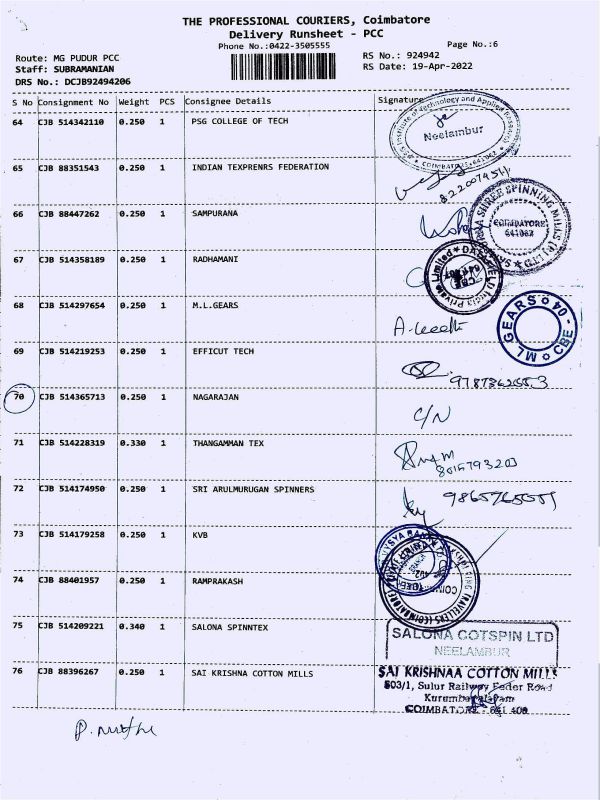 THE PROFESSIONAL COURIERS, Coimbatore
Delivery Runsheet - PCC
Phone No.:0422-3505555
Page No.:6
Route: MG PUDUR PCC
RS No.: 924942
Staff: SUBRAMANIAN
RS Date: 19-Apr-2022
DRS No.: DCJB92494206
S No Consignment No Weight PCS Consignee Details Signature
64 CJB 514342110 0.250 1 PSG COLLEGE OF TECH
Institute of Technology and Applied Research
Neelambur
COIMBATORE
65 CJB 88351543 0.250 1 INDIAN TEXPRENRS FEDERATION
66 CJB 88447262 0.250 1 SAMPURANA
SHREE SPINNING MILLS (P) LTD
COIMBATORE
67 CJB 514358189 0.250 1 RADHAMANI
India Private Limited
CBE
68 CJB 514297654 0.250 1 M.L.GEARS
ML GEARS
CBE - 04
69 CJB 514219253 0.250 1 EFFICUT TECH
70 CJB 514365713 0.250 1 NAGARAJAN C/N
71 CJB 514228319 0.330 1 THANGAMMAN TEX
8015793203
72 CJB 514174950 0.250 1 SRI ARULMURUGAN SPINNERS
73 CJB 514179258 0.250 1 KVB
74 CJB 88401957 0.250 1 RAMPRAKASH
75 CJB 514209221 0.340 1 SALONA SPINNTEX
SALONA COTSPIN LTD
NEELAMBUR
76 CJB 88396267 0.250 1 SAI KRISHNA COTTON MILLS
SAI KRISHNAA COTTON MILLS
503/1, Sulur Railway Feder Road
Kurumbapalayam
COIMBATORE - 641 400